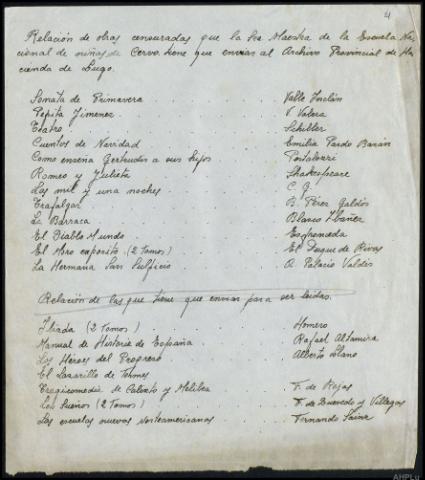 4
Relación de obras censuradas que la Sra Maestra de la Escuela Na
cional de niñas de Cervo tiene que enviar al Archivo Provincial de Ha
cienda de Lugo.
Sonata de Primavera . . . . Valle Inclán
Pepita Jimenez . . . . V. Valera
Teatro . . . . Schiller
Cuentos de Navidad . . . . Emilia Pardo Bazán
Como enseña Gertrudis a sus hijos . . . . Pestalozzi
Romeo y Julieta . . . . Shakespeare
Las mil y una noches . . . . C. G.
Trafalgar . . . . B. Pérez Galdós
La Barraca . . . . Blasco Ibáñez
El Diablo Mundo . . . . Espronceda
El Moro expósito (2 tomos) . . . . El Duque de Rivas
La Hermana San Sulpicio . . . . A. Palacio Valdés
Relación de las que tiene que enviar para ser leidas.
Iliada (2 tomos) . . . . Homero
Manual de Historia de España . . . . Rafael Altamira
Los Héroes del Progreso . . . . Alberto Llano
El Lazarillo de Tormes
Tragicomedia de Calixto y Melibea . . . . F. de Rojas
Los Sueños (2 Tomos) . . . . F. de Quevedo y Villegas
Las escuelas nuevas norteamericanas . . . . Fernando Sainz
AHPLu